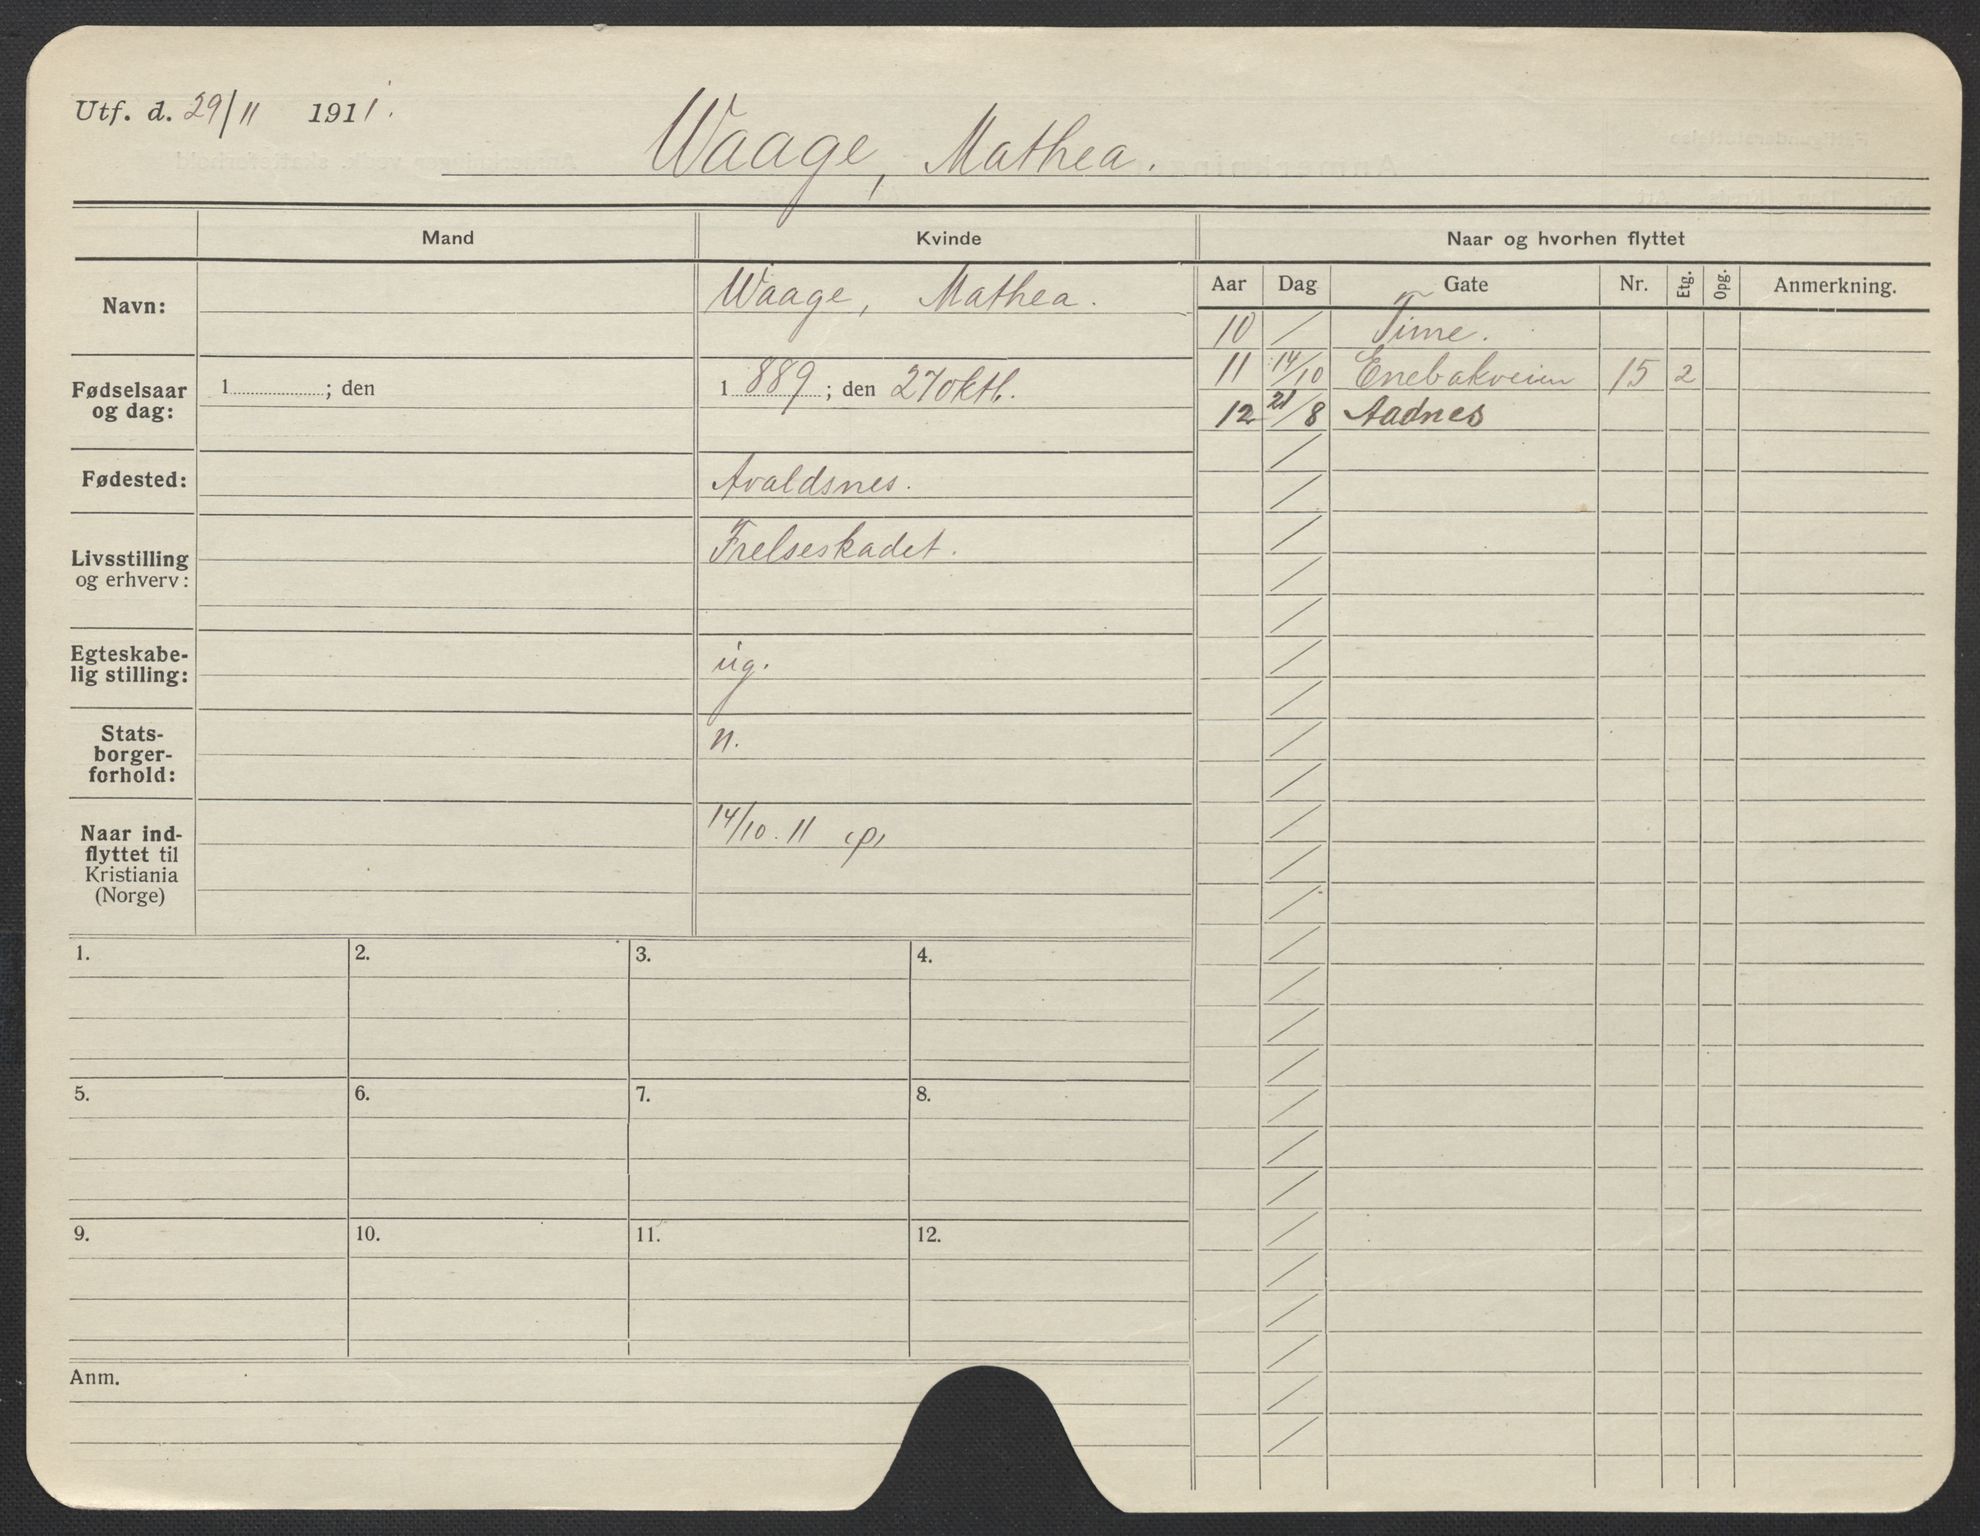 Utf. d. 29/11 1911.
Waage, Mathea.
Mand
Kvinde
Naar og hvorhen flyttet
Navn:
Waage, Mathea.
Fødselsaar og dag:
1 ; den
1 889 ; den 27 oktb.
Fødested:
Avaldsnes.
Livsstilling og erhverv:
Frelseskadet.
Egteskabe-
lig stilling:
ug.
Stats-
borger-
forhold:
n.
Naar ind-
flyttet til
Kristiania
(Norge)
14/10. 11
Aar Dag Gate Nr. Etg. Opg. Anmerkning.
10 / Time.
11 14/10 Enebakveien 15 2
12 21/8 Aadnes
1. 2. 3. 4.
5. 6. 7. 8.
9. 10. 11. 12.
Anm.